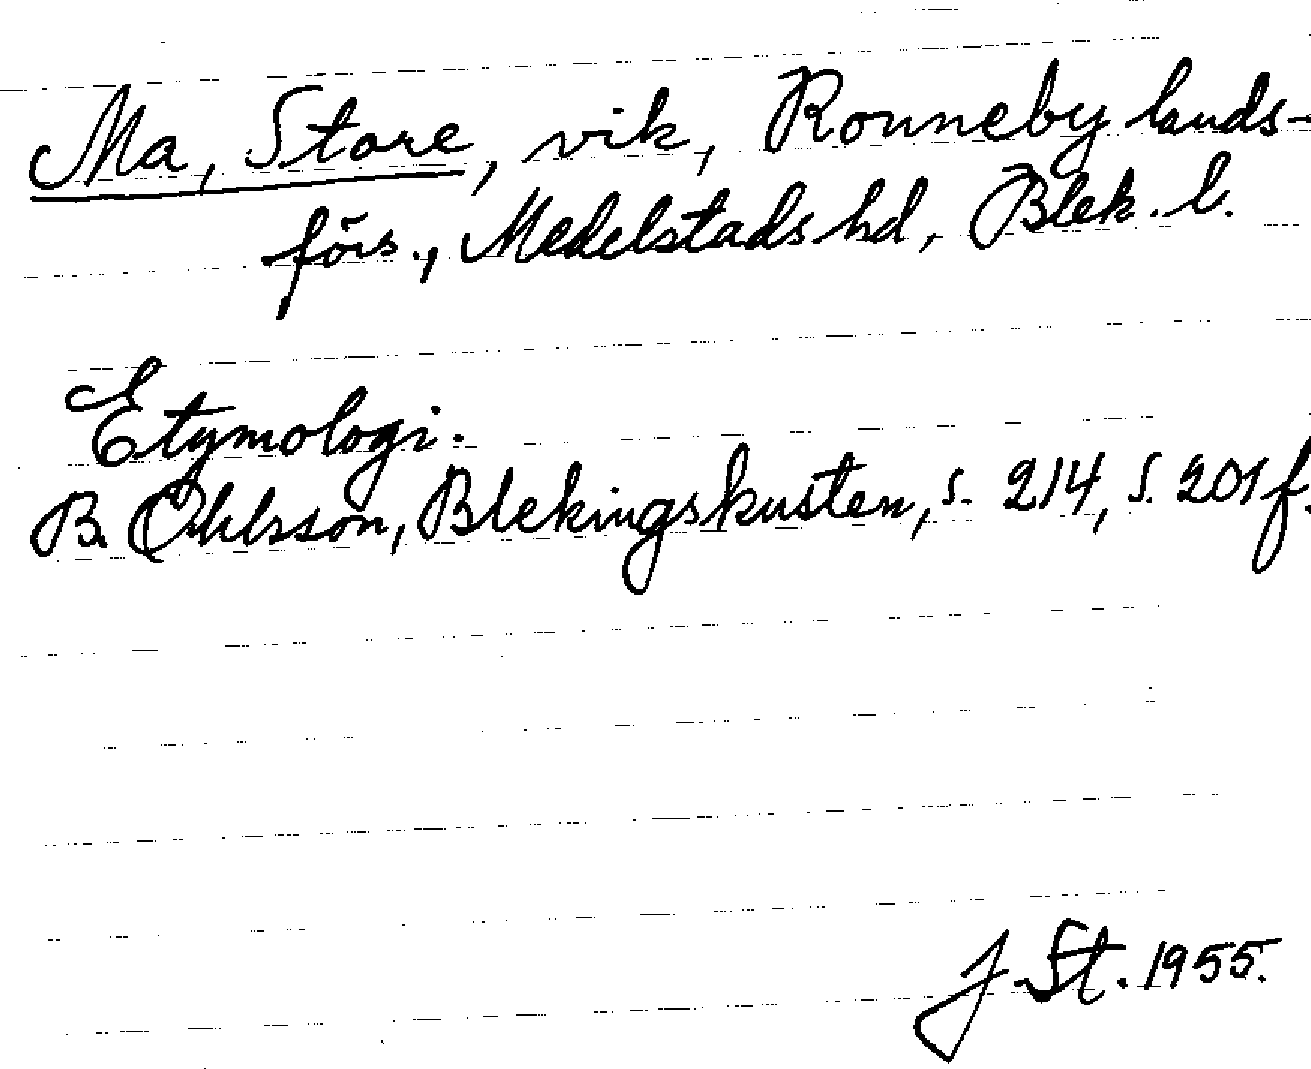 Ma, Store, vik, Ronneby lands-
förs., Medelstads hd, Blek. l.
Etymologi.
B. Ohlsson, Blekingskusten, s. 214, s. 201 f.
J. St. 1955.